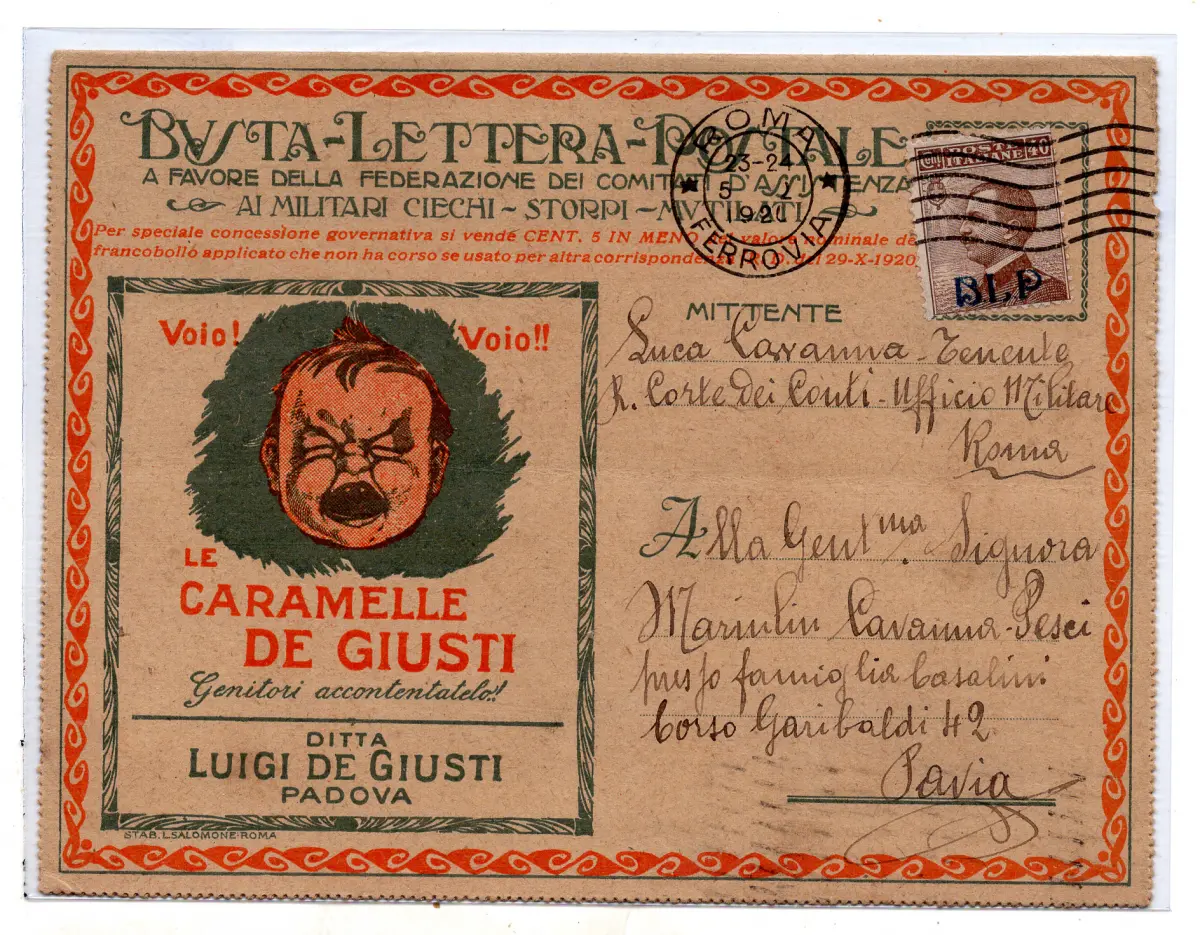 BVSTA-LETTERA-POSTALE
A FAVORE DELLA FEDERAZIONE DEI COMITATI D'ASSISTENZA
AI MILITARI CIECHI ~ STORPI ~ MVTILATI
Per speciale concessione governativa si vende CENT. 5 IN MENO del valore nominale del
francobollo applicato che non ha corso se usato per altra corrispondenza R. D. del 29-X-1920
ROMA
23-24
5
1921
FERROVIA
POSTE
ITALIANE
40
BLP
Voio! Voio!!
LE
CARAMELLE
DE GIUSTI
Genitori accontentatelo!!
DITTA
LUIGI DE GIUSTI
PADOVA
STAB. L. SALOMONE-ROMA
MITTENTE
Luca Cavanna - Tenente
R. Corte dei Conti - Ufficio Militare
Roma
Alla Gent.ma Signora
Cavanna-Pesci
presso famiglia Casalini
Corso Garibaldi 42
Pavia